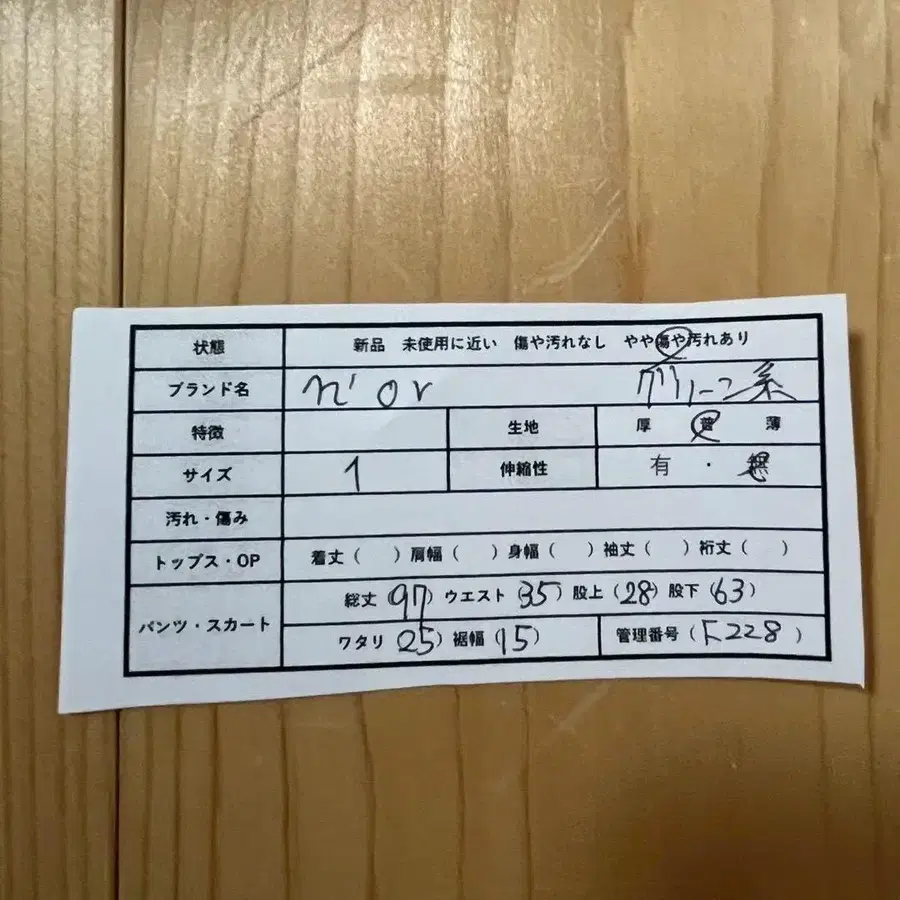 状態 新品 未使用に近い 傷や汚れなし やや傷や汚れあり
ブランド名 n'or グリーン系
特徴 生地 厚 普 薄
サイズ 1 伸縮性 有 ・ 無
汚れ・傷み
トップス・OP 着丈( ) 肩幅( ) 身幅( ) 袖丈( ) 裄丈( )
パンツ・スカート 総丈(97) ウエスト(35) 股上(28) 股下(63)
ワタリ(25) 裾幅(15) 管理番号(F228)